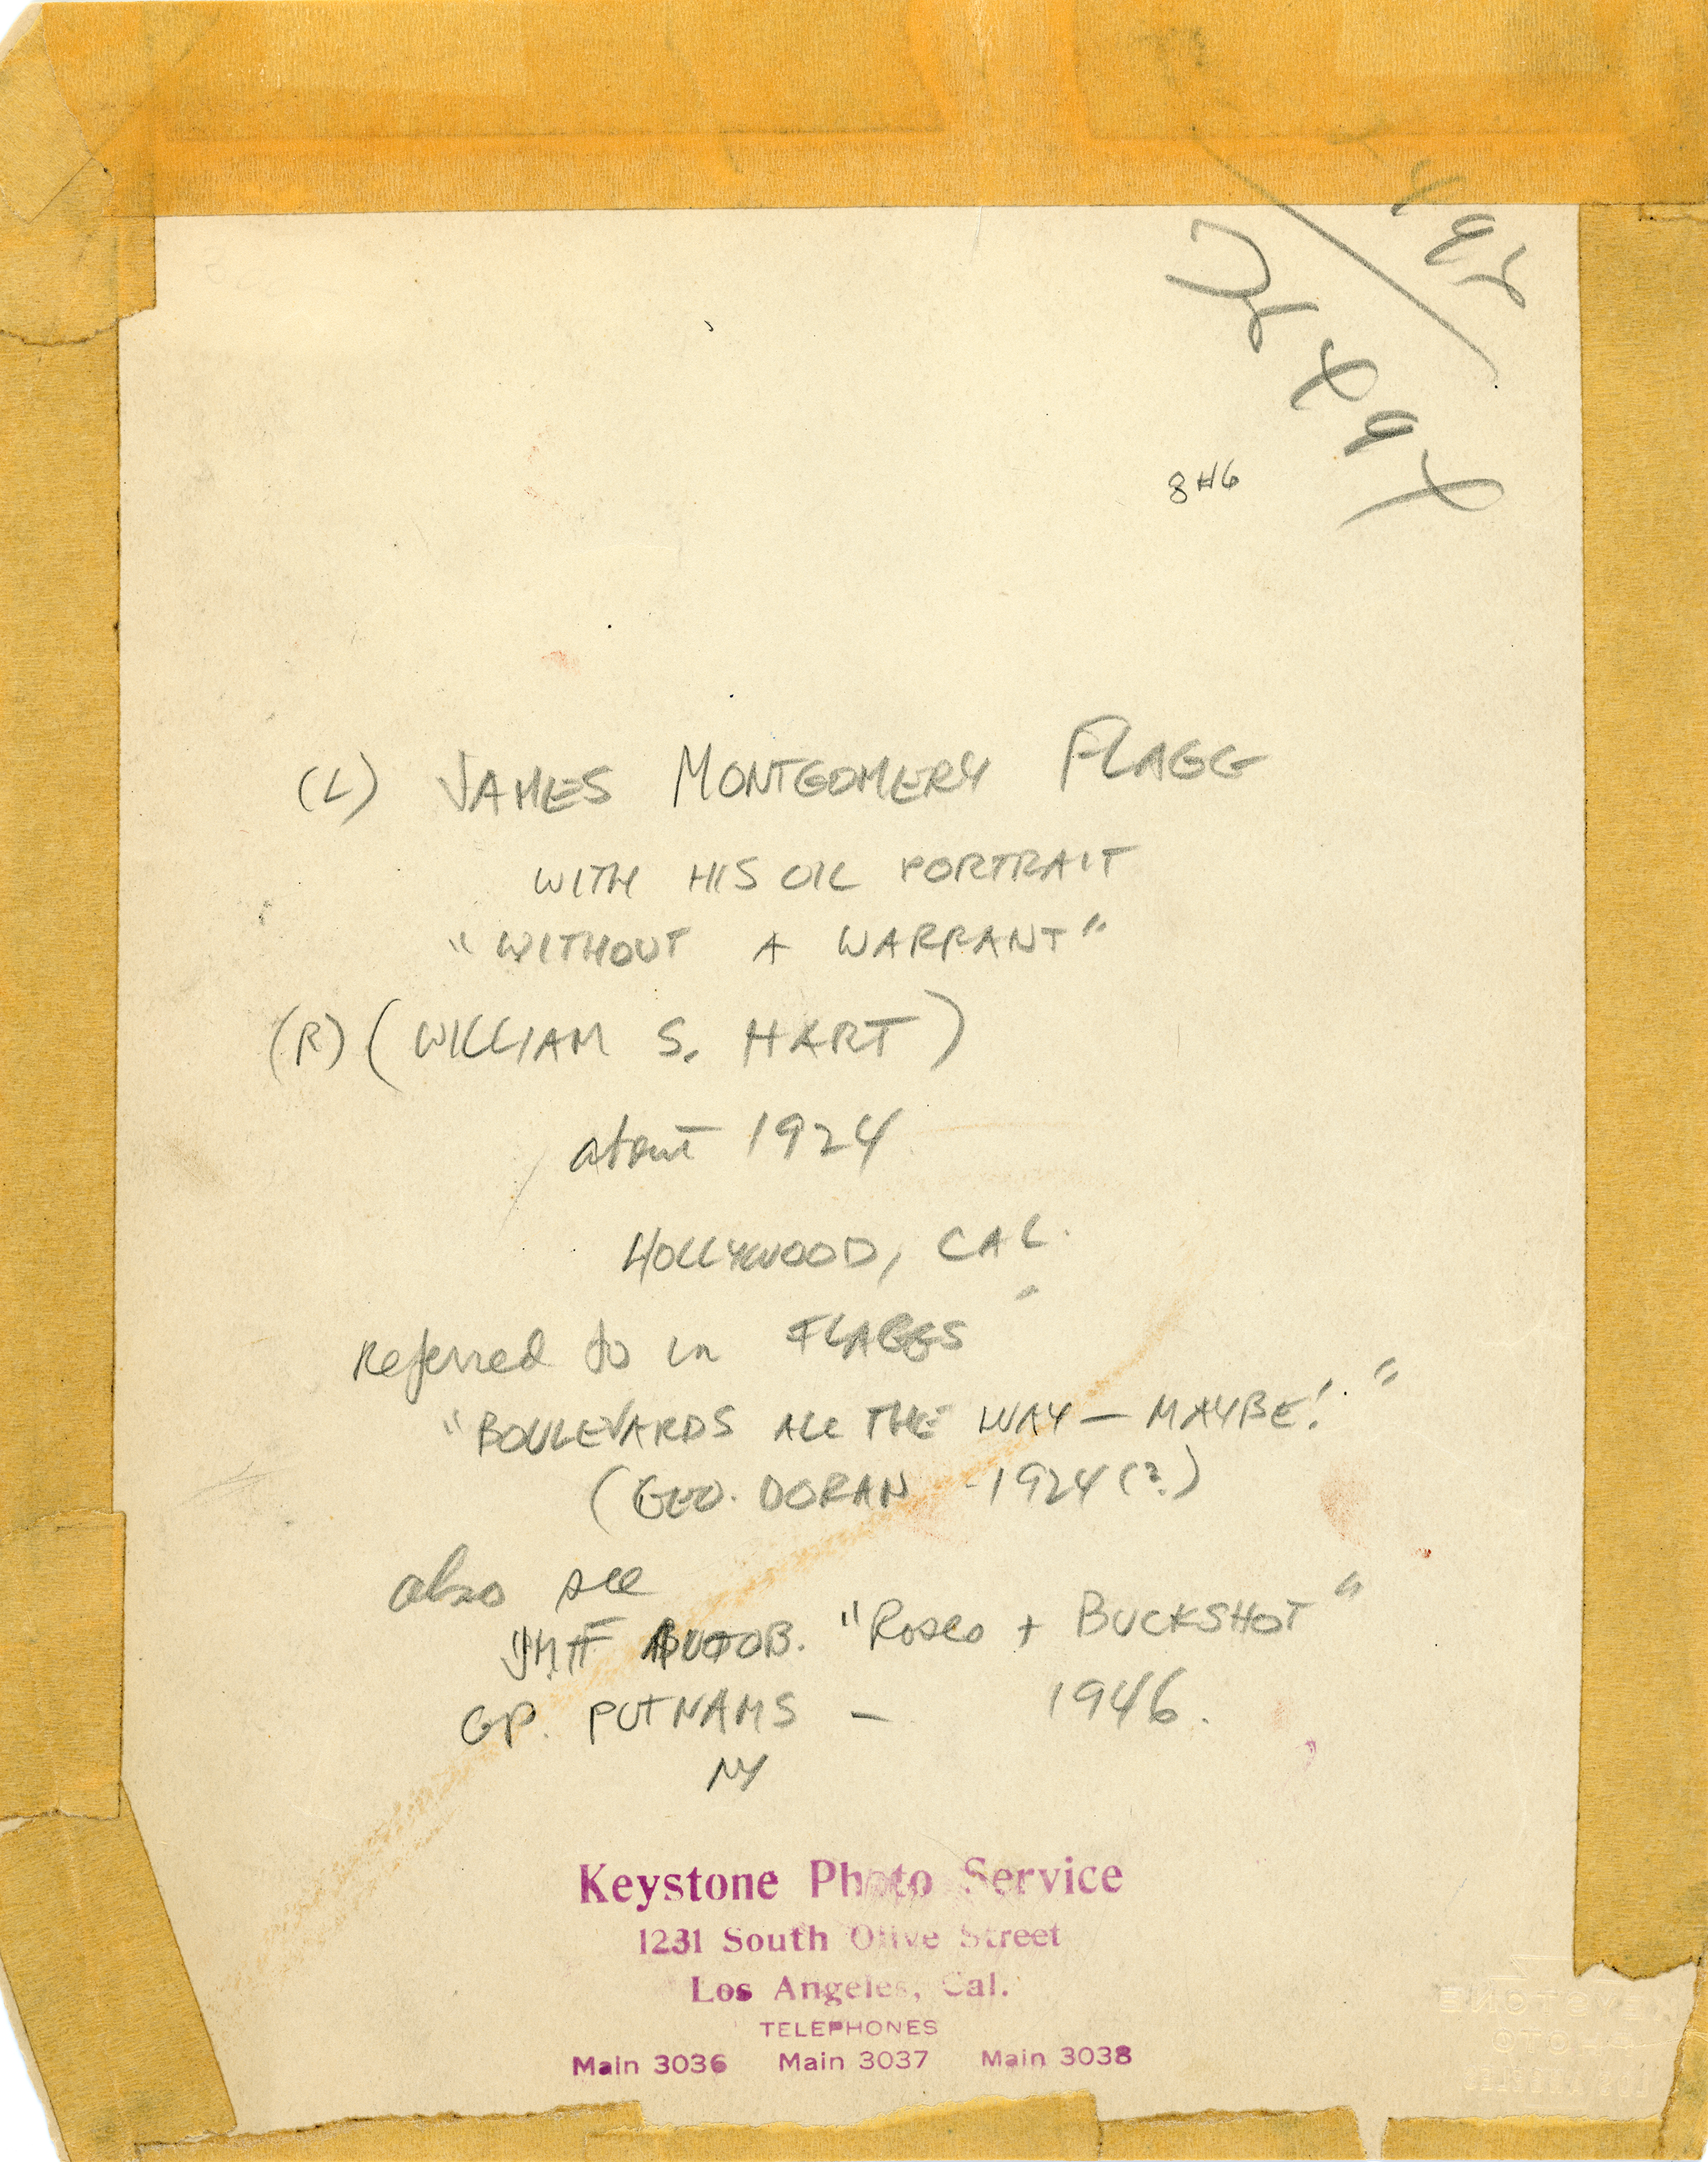 8H6
(L) JAMES MONTGOMERY FLAGG
WITH HIS OIL PORTRAIT
"WITHOUT A WARRANT"
(R) (WILLIAM S. HART)
about 1924
HOLLYWOOD, CAL.
Referred to in FLAGGS "
"BOULEVARDS ALL THE WAY — MAYBE! "
(GEO. DORAN - 1924 (?)
also see
JMF AUTOB. "Roses + BUCKSHOT"
GP. PUTNAMS — 1946.
NY
Keystone Photo Service
1231 South Olive Street
Los Angeles, Cal.
TELEPHONES
Main 3036 Main 3037 Main 3038
KEYSTONE
PHOTO
LOS ANGELES